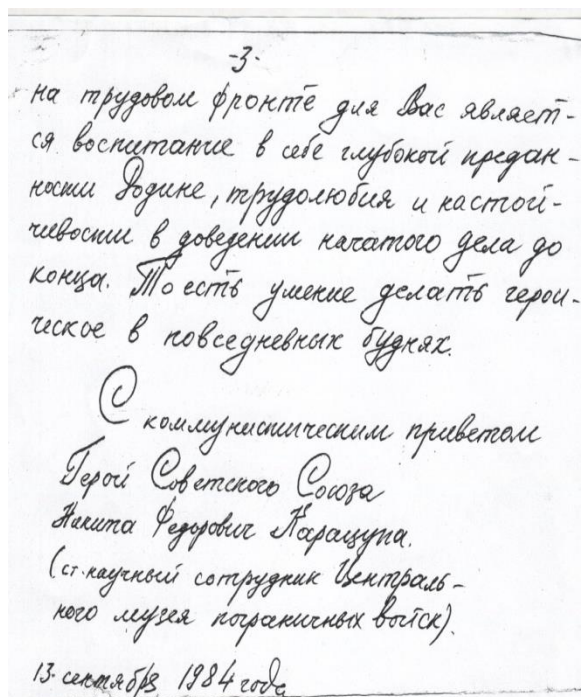 -3-
на трудовом фронте для Вас являет-
ся воспитание в себе глубокой предан-
ности Родине, трудолюбия и настой-
чивости в доведении начатого дела до
конца. То есть умение делать герои-
ческое в повседневных буднях.
С коммунистическим приветом
Герой Советского Союза
Никита Федорович Карацупа.
(ст. научный сотрудник Централь-
ного музея пограничных войск).
13. сентября 1984 года